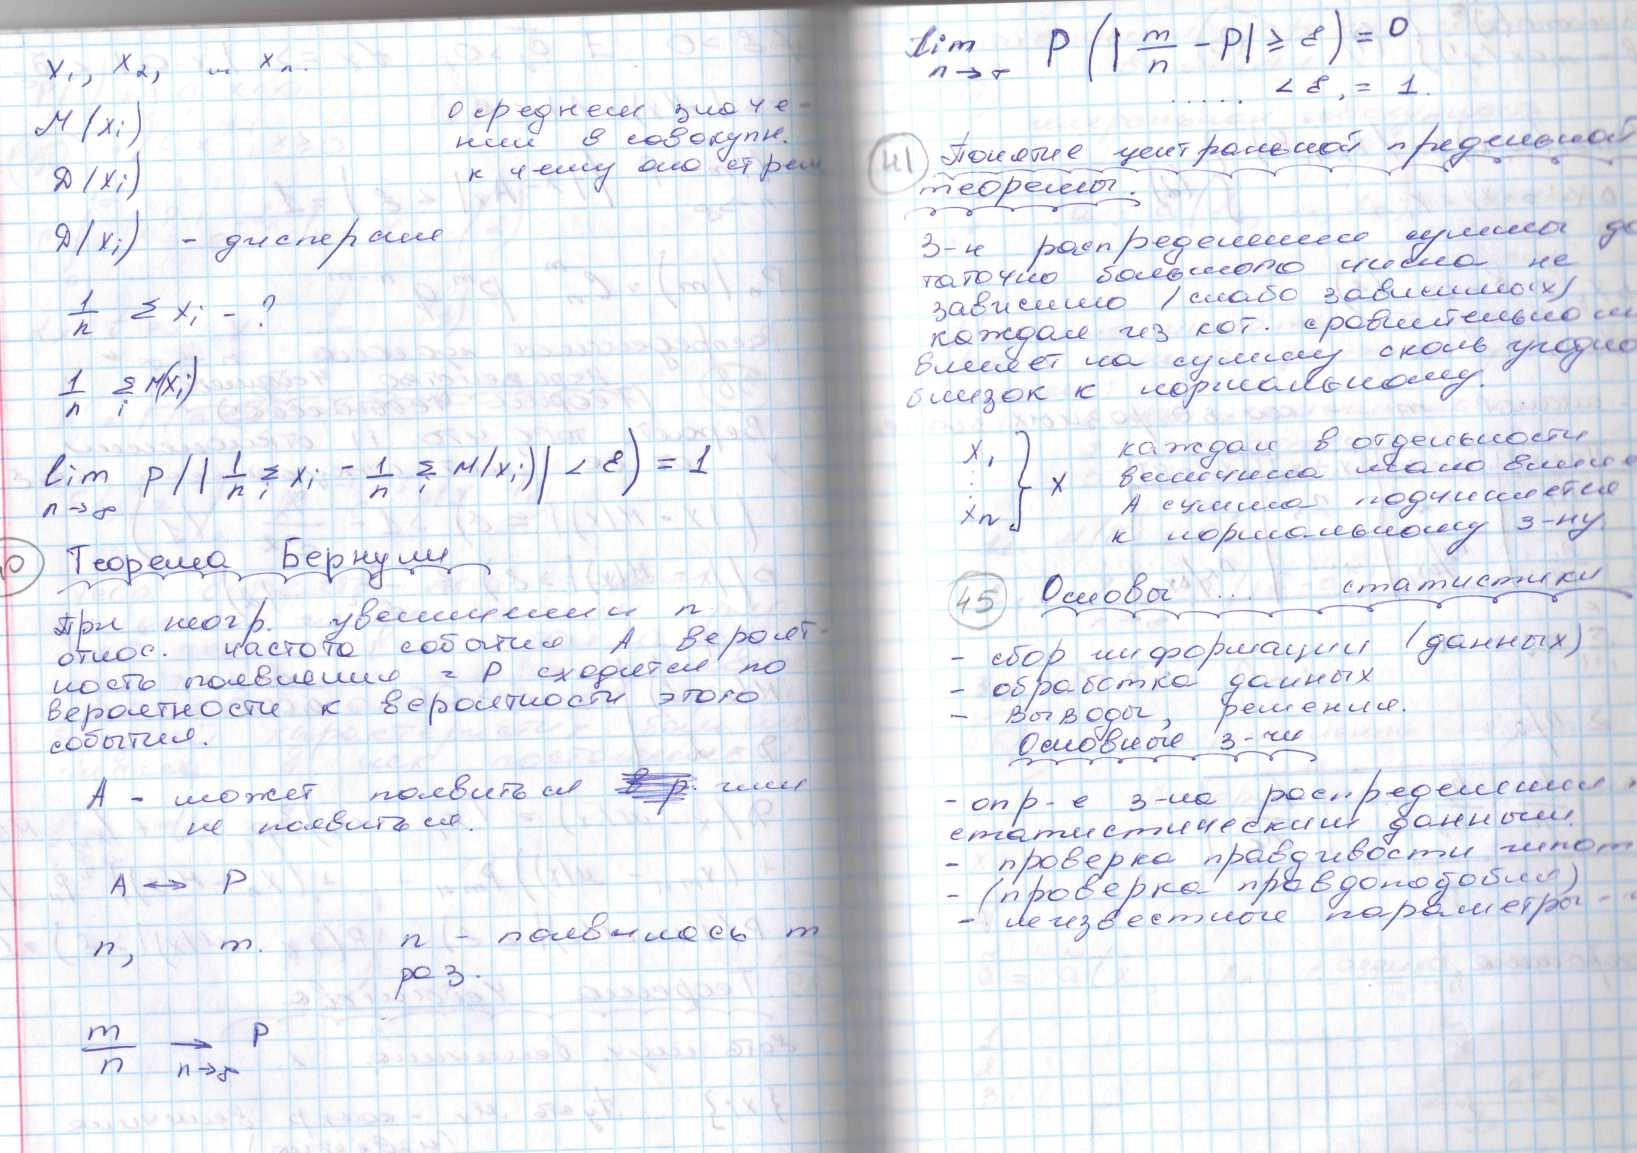 x₁, x₂, ... xₙ.
М(xᵢ)
Д(xᵢ)
О среднем значе-
нии в совокупн.
к чему оно стрем
Д(xᵢ) - дисперсия
1/n Σ xᵢ - ?
1/n Σᵢ М(xᵢ)
lim n→∞ P(|1/n Σᵢ xᵢ - 1/n Σᵢ М(xᵢ)| < ε) = 1
0 Теорема Бернули
При неогр. увеличении n
относ. частота события А вероят-
ность появления = P сходится по
вероятности к вероятности этого
события.
А - может появиться или
не появиться.
А ↔ P
n, m. n - появилось m
раз.
m/n → n→∞ P
lim n→∞ P(|m/n - P| ≥ ε) = 0
..... < ε, = 1.
41 Понятие центральной предельной
теоремы.
З-н распределения суммы до
таточно большого числа не
зависимо (слабо зависимых)
каждая из кот. сравнительно м
влияет на сумму сколь угодно
близок к нормальному.
x₁ ⋮ xₙ } x
каждая в отдельности
величина мало влияе
А сумма подчиняется
к нормальному з-ну
45 Основы ... статистики
- сбор информации (данных)
- обработка данных
- выводы, решения.
Основные з-чи
- опр-е з-на распределения
статистическим данным.
- проверка правдивости гипот
- (проверка правдоподобия)
- неизвестные параметры -